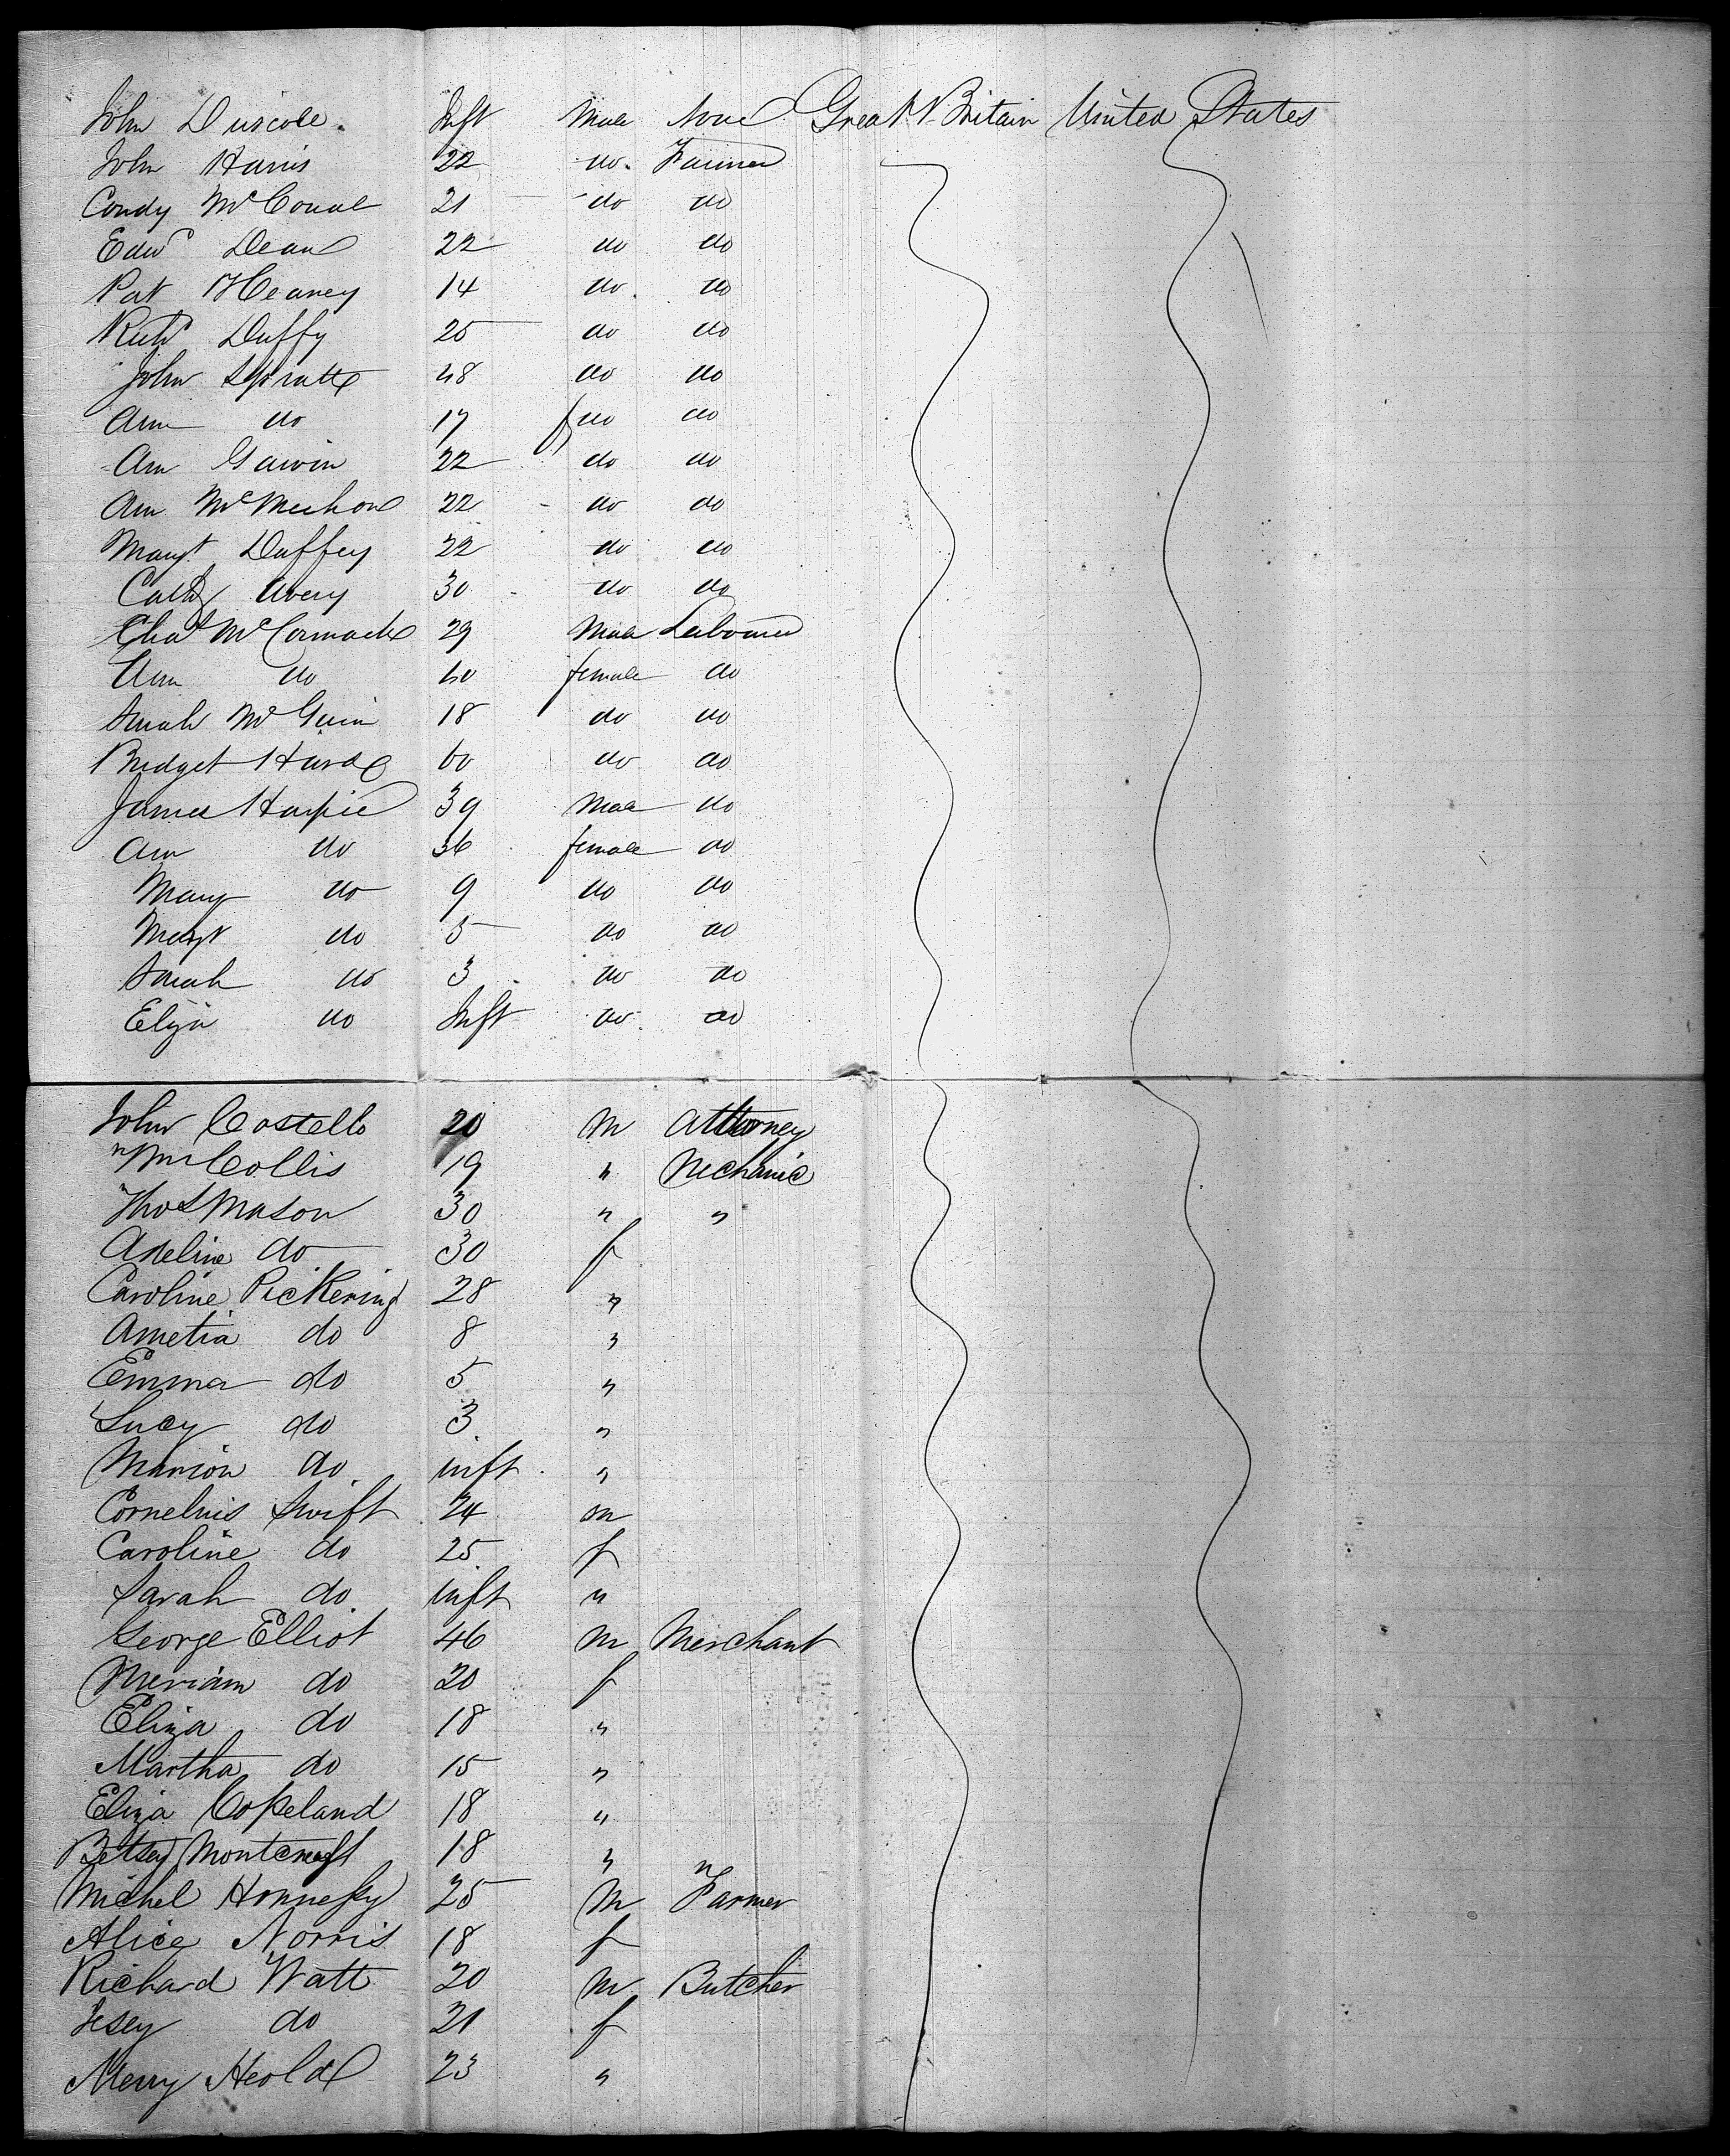 John Driscole. Inft Male None Great Britain United States
John Harris 22 do. Farmer
Condy McConal 21 do do
Edwd Dean 22 do do
Pat Heaney 14 do. do
Richd Duffy 25 do do
John Spratt 48 do do
Ann do 17 f do do
Ann Gawin 22 do do
Ann McMechon 22 do do
Margt Duffey 22 do do
Cathe Avery 30 do do
Chas McCormack 29 Male Labourer
Ann do 40 female do
Sarah McGuin 18 do do
Bridget Hurd 60 do do
James Harpie 39 Male do
Ann do 36 female do
Mary do 9 do do
Margt do 5 do do
Sarah do 3 do do
Eliza do Inft do do
John Costello 20 m Attorney
Wm Collis 19 " Mechanic
Thos Mason 30 " "
Adeline do 30 f
Caroline Pickering 28 "
Ametia do 8 "
Emma do 5 "
Lucy do 3 "
Marion do inft "
Cornelius Swift 24 m
Caroline do 25 f
Sarah do inft "
George Elliot 46 m Merchant
Meriam do 20 f
Eliza do 18 "
Martha do 15 "
Eliza Copeland 18 "
Betsey Montcraft 18 " "
Michel Honnessy 25 m Farmer
Alice Norris 18 f
Richard Watt 20 m Butcher
Jesey do 21 f
Merry Heold 23 "